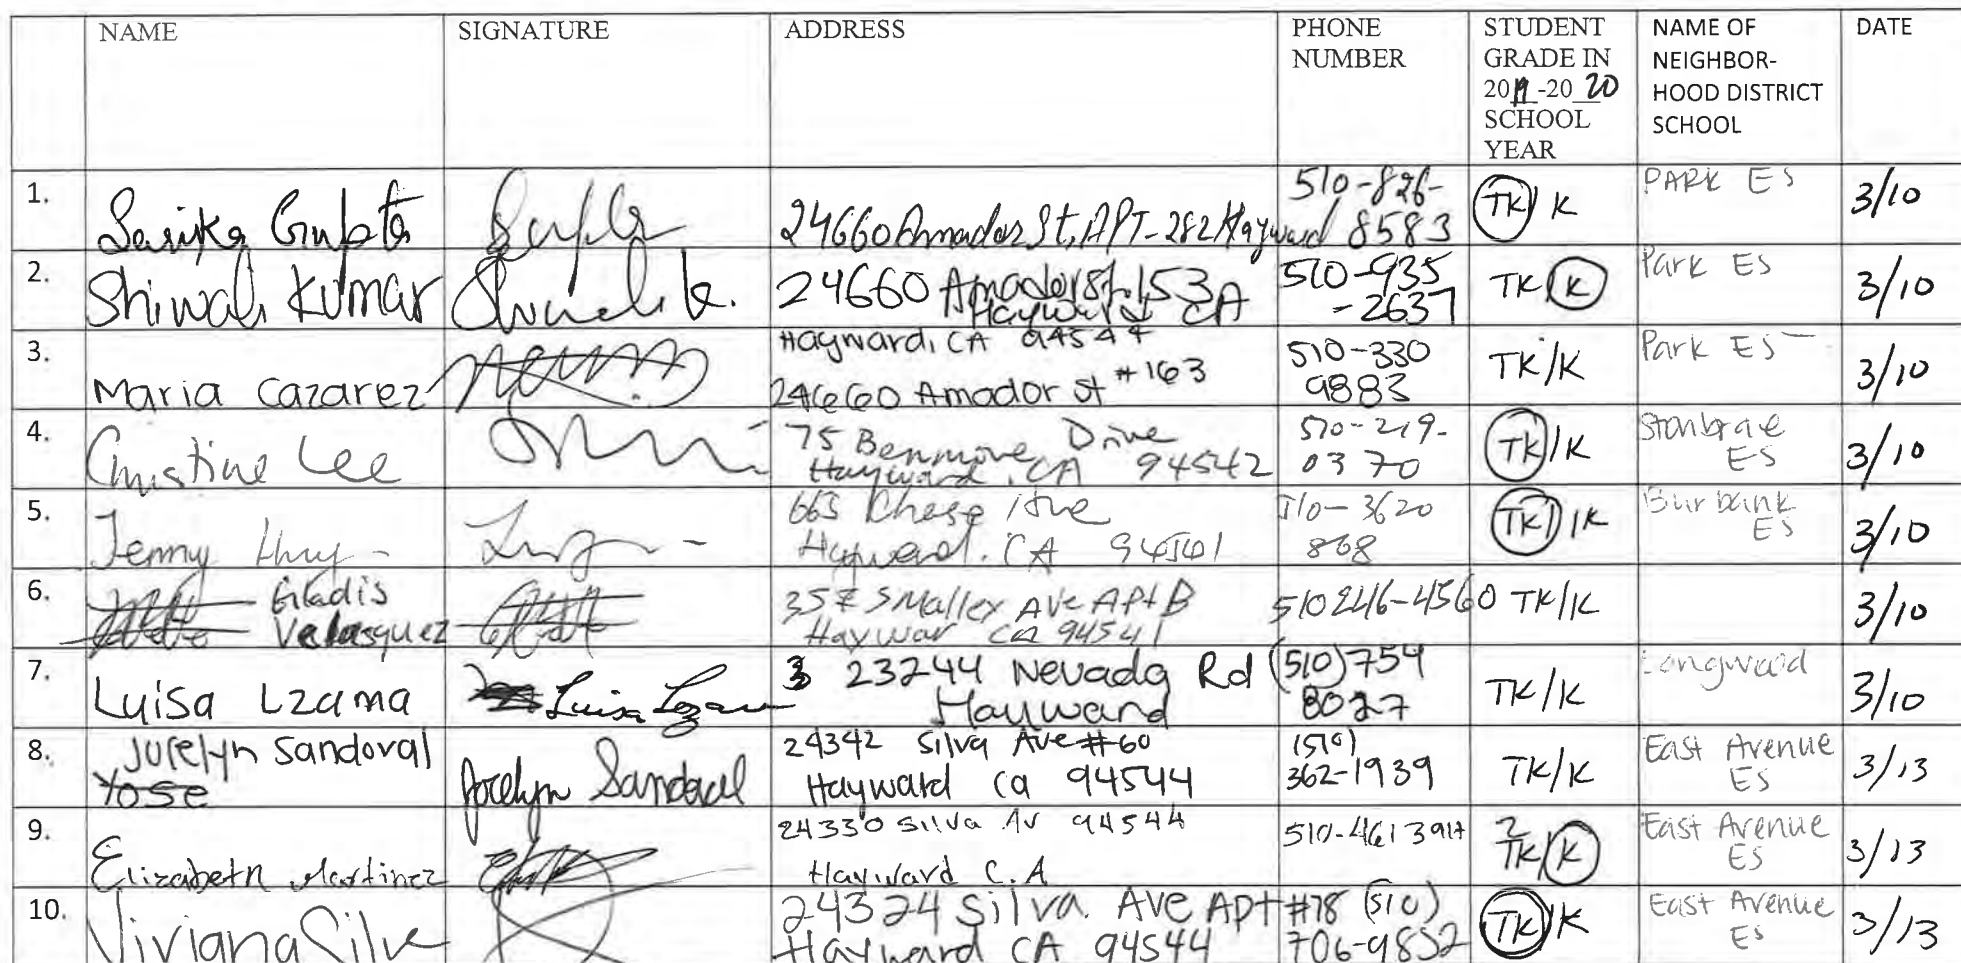 NAME SIGNATURE ADDRESS PHONE NUMBER STUDENT GRADE IN 2019-2020 SCHOOL YEAR NAME OF NEIGHBOR-HOOD DISTRICT SCHOOL DATE
1. Sarika Gupta 24660 Amador St, APT-282 Hayward 510-826-8583 TK/K PARK ES 3/10
2. Shiwali Kumar Shiwali K. 24660 Amador St. 153 Hayward CA 510-935-2637 TK/K Park ES 3/10
3. Maria Cazarez Hayward, CA 94544 24660 Amador st #163 510-330 9883 TK/K Park ES 3/10
4. Christine Lee 75 Drive Hayward, CA 94542 510-219-0370 TK/K Stonbrae ES 3/10
5. Jenny Huy 665 Chase Ave Hayward, CA 94541 510-3620 868 TK/K Burbank ES 3/10
6. Gladis Velasquez Smalley Ave Apt B Haywar ca 94541 510 246-4560 TK/K 3/10
7. Luisa Lzama Luisa 23244 Nevada Rd Hayward (510)754 8027 TK/K Longwood 3/10
8. Jocelyn Sandoval Yose Jocelyn Sandoval 24342 Silva Ave #60 Hayward Ca 94544 (510) 362-1939 TK/K East Avenue ES 3/13
9. Elizabeth Martinez 24330 Silva Av 94544 Hayward C.A 510-461 3914 2 TK/K East Avenue ES 3/13
10. Viviana Silva 24324 Silva Ave Apt #78 Hayward CA 94544 (510) 706-9852 TK/K East Avenue ES 3/13